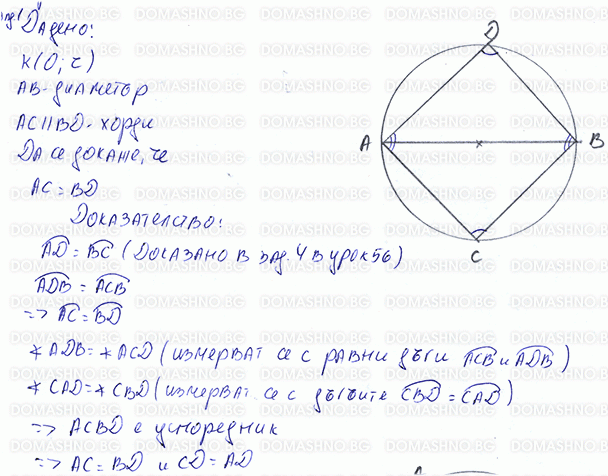 Дадено:
k(O; r)
AB - диаметър
AC || BD - хорди
Да се докаже, че
AC = BD
Доказателство:
AD = BC (Доказано в зад. 4 в урок 56)
ADB = ACB
=> AC = BD
∢ ADB = ∢ ACD (измерват се с равни дъги ACB и ADB)
∢ CAD = ∢ CBD (измерват се с дъгите CBD = CAD)
=> ACBD е успоредник
=> AC = BD и CD = AD
D
A
B
C
DOMASHNO.BG